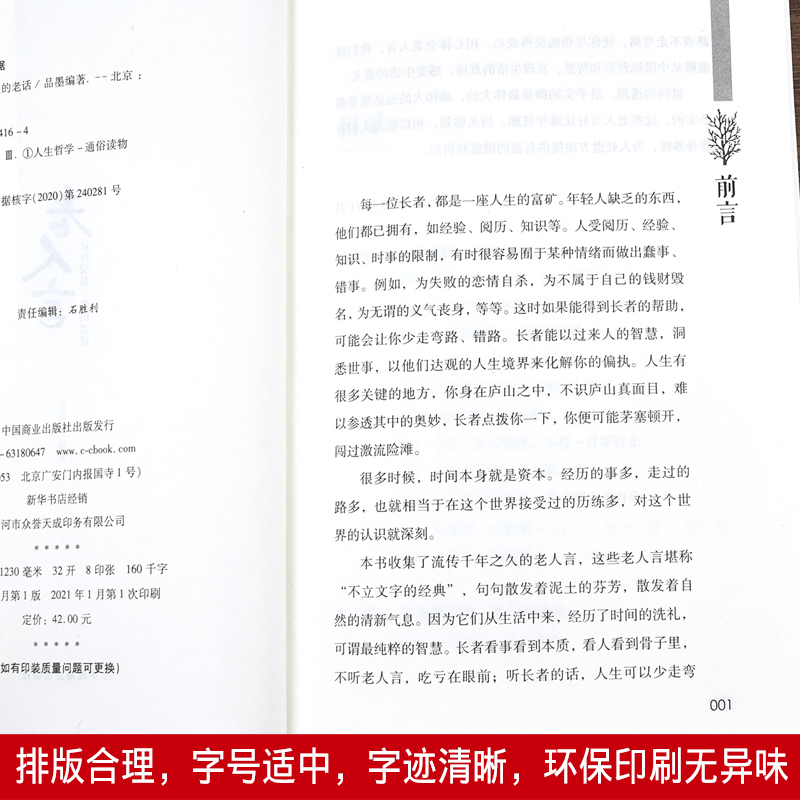 据
的老话/品墨编著. --北京:
416-4
Ⅲ. ①人生哲学-通俗读物
据核字(2020)第 240281 号
责任编辑: 石胜利
中国商业出版社出版发行
-63180647 www.c-cbook.com
053 北京广安门内报国寺1号)
新华书店经销
河市众誉天成印务有限公司
*****
1230 毫米 32 开 8 印张 160 千字
月第1版 2021年1月第1次印刷
定价: 42.00 元
*****
如有印装质量问题可更换)
前言
每一位长者,都是一座人生的富矿。年轻人缺乏的东西,
他们都已拥有,如经验、阅历、知识等。人受阅历、经验、
知识、时事的限制,有时很容易囿于某种情绪而做出蠢事、
错事。例如,为失败的恋情自杀,为不属于自己的钱财毁
名,为无谓的义气丧身,等等。这时如果能得到长者的帮助,
可能会让你少走弯路、错路。长者能以过来人的智慧,洞
悉世事,以他们达观的人生境界来化解你的偏执。人生有
很多关键的地方,你身在庐山之中,不识庐山真面目,难
以参透其中的奥妙,长者点拨你一下,你便可能茅塞顿开,
闯过激流险滩。
很多时候,时间本身就是资本。经历的事多,走过的
路多,也就相当于在这个世界接受过的历练多,对这个世
界的认识就深刻。
本书收集了流传千年之久的老人言,这些老人言堪称
“不立文字的经典”,句句散发着泥土的芬芳,散发着自
然的清新气息。因为它们从生活中来,经历了时间的洗礼,
可谓最纯粹的智慧。长者看事看到本质,看人看到骨子里,
不听老人言,吃亏在眼前;听长者的话,人生可以少走弯
001
排版合理,字号适中,字迹清晰,环保印刷无异味